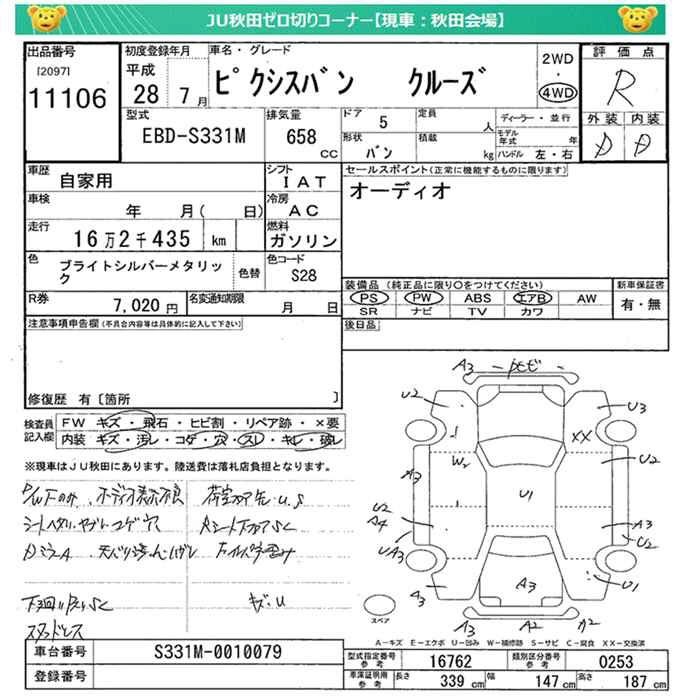 JU秋田ゼロ切りコーナー【現車：秋田会場】
出品番号
[2097]
11106
初度登録年月
平成
28 7月
車名・グレード
ピクシスバン クルーズ
2WD
・
4WD
評価点
R
外装 内装
D D
型式
EBD-S331M
排気量
658
cc
ドア 5
形状
バン
定員
人
積載
kg
ディーラー・並行
モデル年式 年
ハンドル 左・右
車歴
自家用
シフト
IAT
車検
年 月( 日)
冷房
AC
走行
16万2千435 km
燃料
ガソリン
色
ブライトシルバーメタリック
色替
色コード
S28
R券
7,020 円
名変通知期限
月 日
セールスポイント(正常に機能するものに限ります)
オーディオ
装備品 (純正品に限り○をつけてください)
PS PW ABS エアB AW
SR ナビ TV カワ
新車保証書
有・無
後日品
注意事項申告欄(不具合内容等は具体的に記入して下さい)
修復歴 有〔箇所 〕
検査員
記入欄
FW キズ・飛石・ヒビ割・リペア跡・×要
内装 キズ・汚レ・コゲ・穴・スレ・キレ・破レ
※現車はJU秋田にあります。陸送費は落札店負担となります。
シートヘタリ・ヤブレ・コゲ穴
キズ・U
スタッドレス
A3
U2
U3
XX
W2
U2
A3
U1
U2
A4
UA3
A3
U2
A3
A3
U1
A3
A2
スペア
A－キズ E－エクボ U－凹み W－補修跡 S－サビ C－腐食 XX－交換済
車台番号
S331M-0010079
登録番号
型式指定番号
参考
16762
類別区分番号
参考
0253
車庫証明用
参考
長さ 339 cm
幅 147 cm
高さ 187 cm